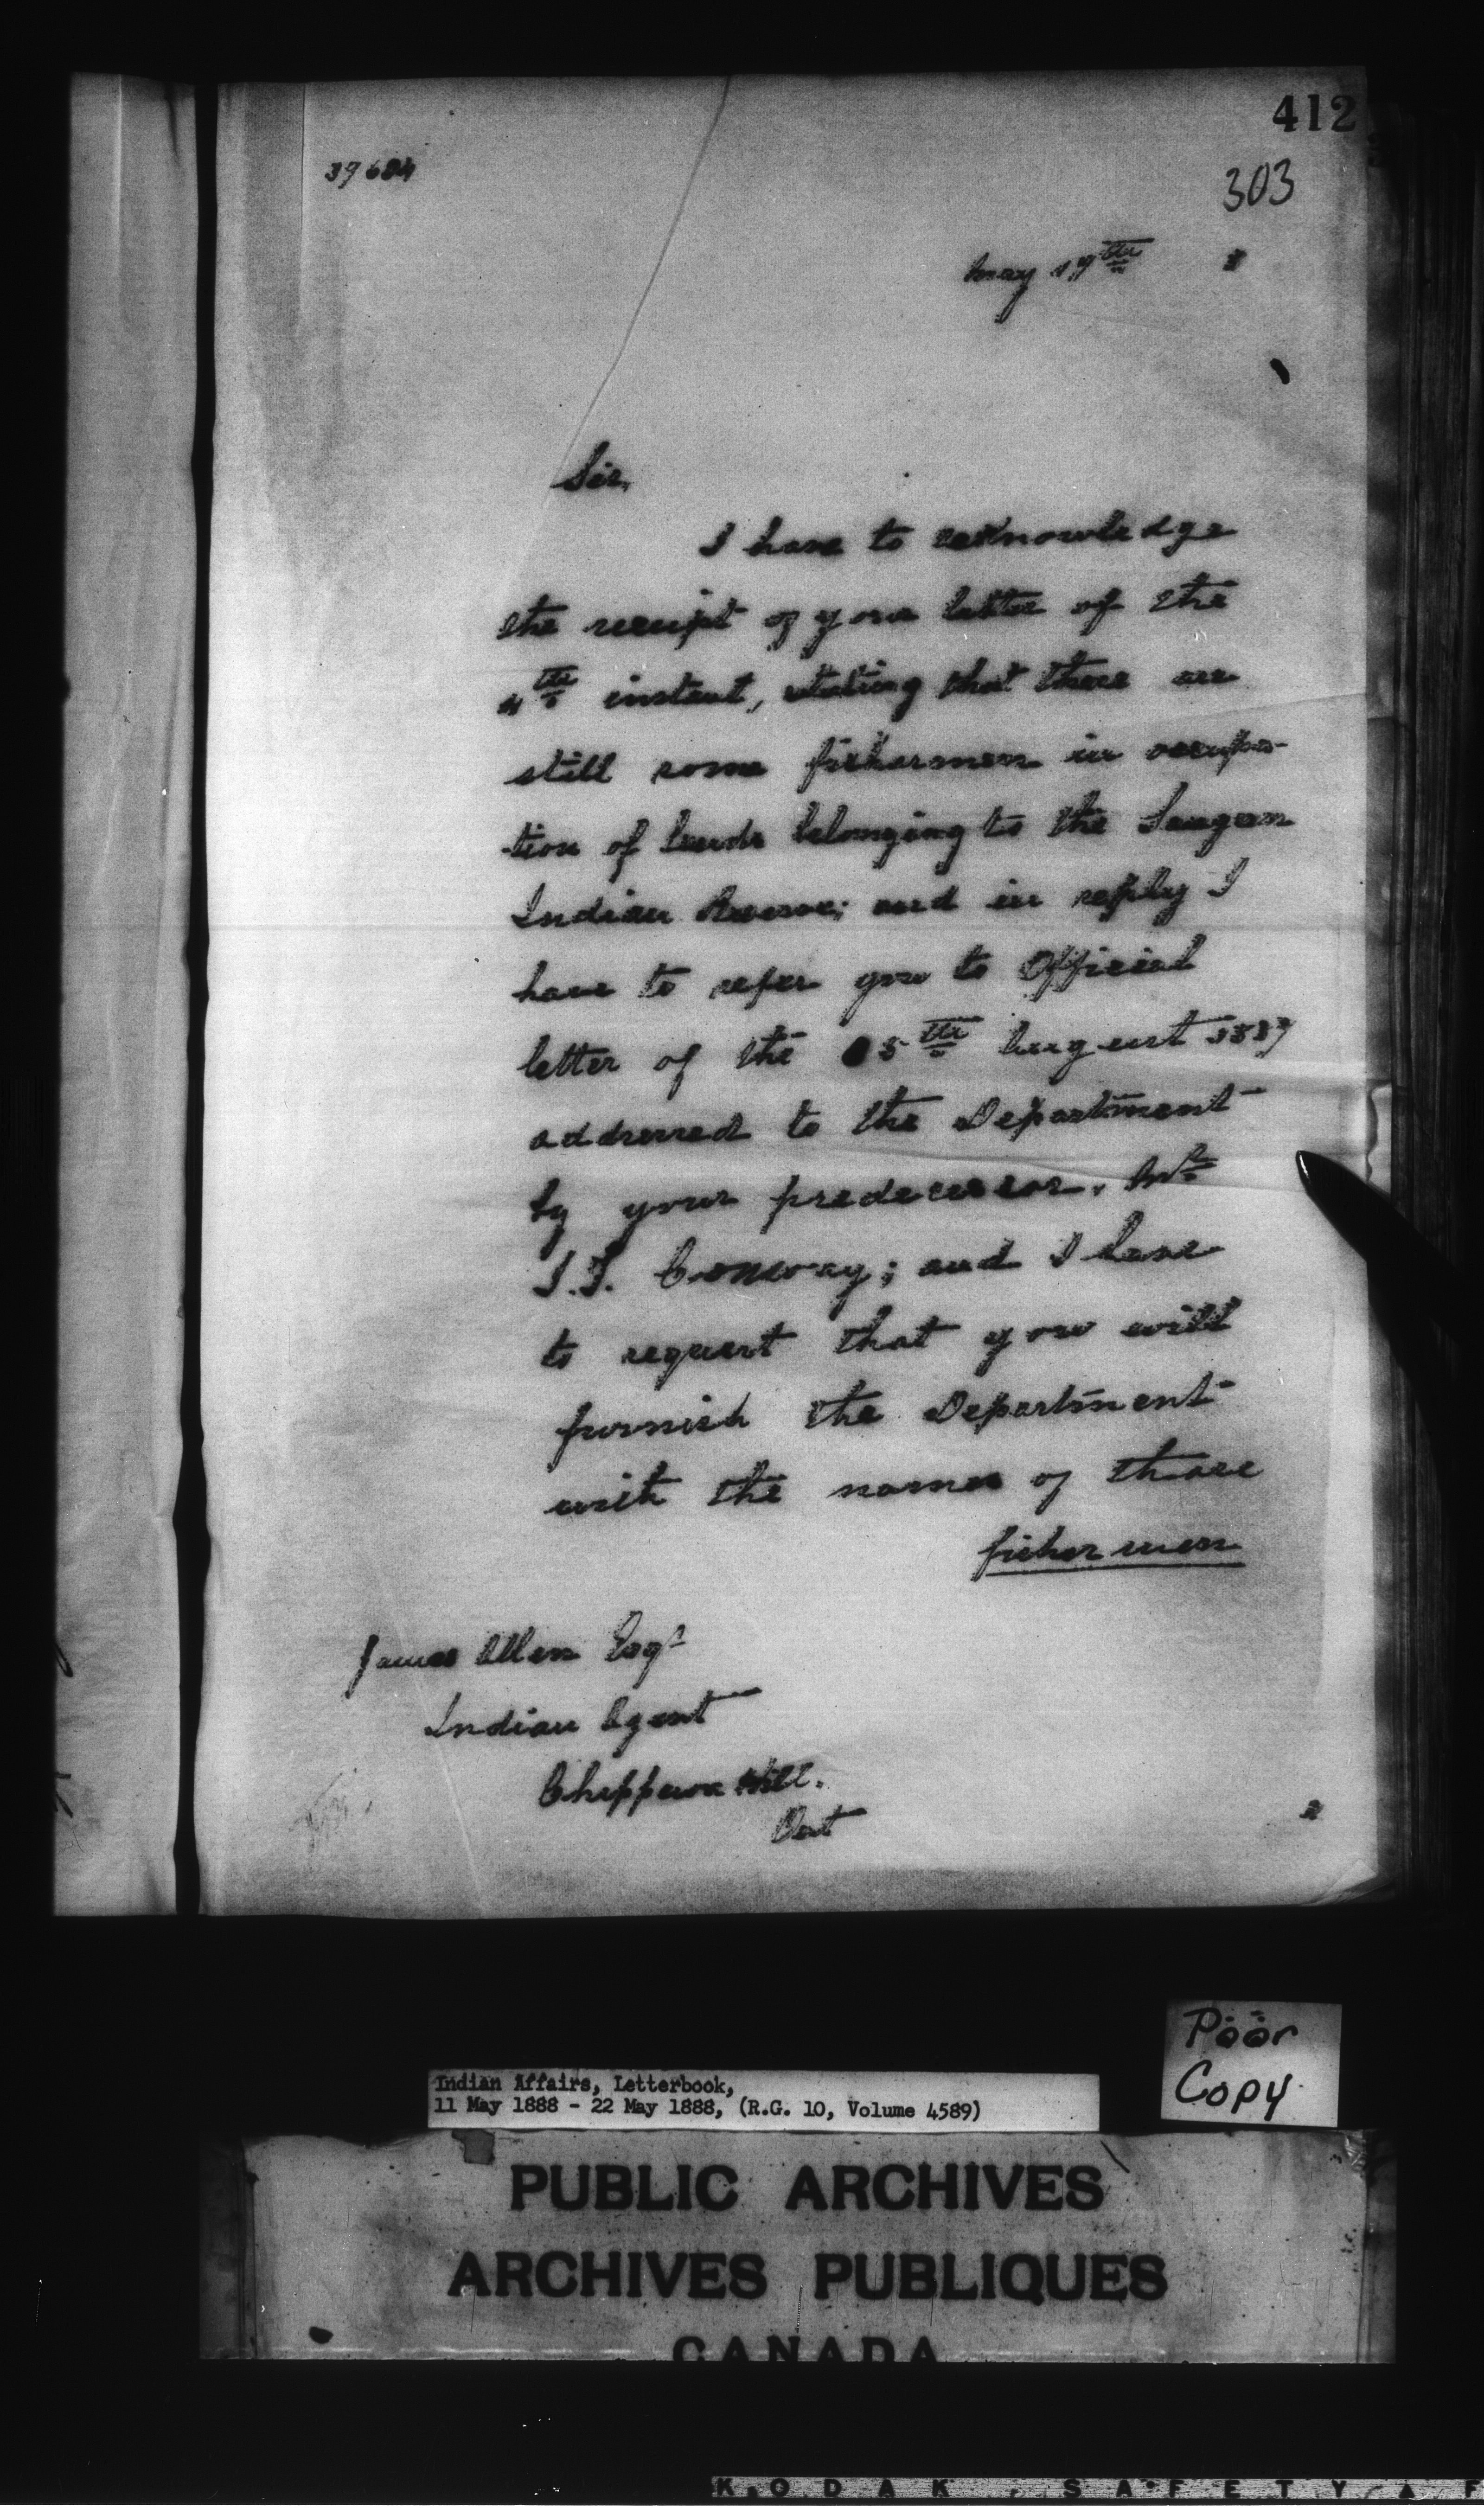 412
303
May 17th 8
Sir,
I have to acknowledge
the receipt of your letter of the
4th instant, stating that there are
still some fishermen in occupa-
-tion of lands belonging to the Saugeen
Indian Reserve; and in reply I
have to refer you to Official
letter of the 5th August 1887
addressed to the Department
by your predecessor, Mr
J.T. Conway; and I have
to request that you will
furnish the Department
with the names of those
fishermen
James Allen Esqr
Indian Agent
Chippewa Hill.
Ont
Poor
Copy
Indian Affairs, Letterbook,
11 May 1888 - 22 May 1888, (R.G. 10, Volume 4589)
PUBLIC ARCHIVES
ARCHIVES PUBLIQUES
CANADA
KODAK SAFETY